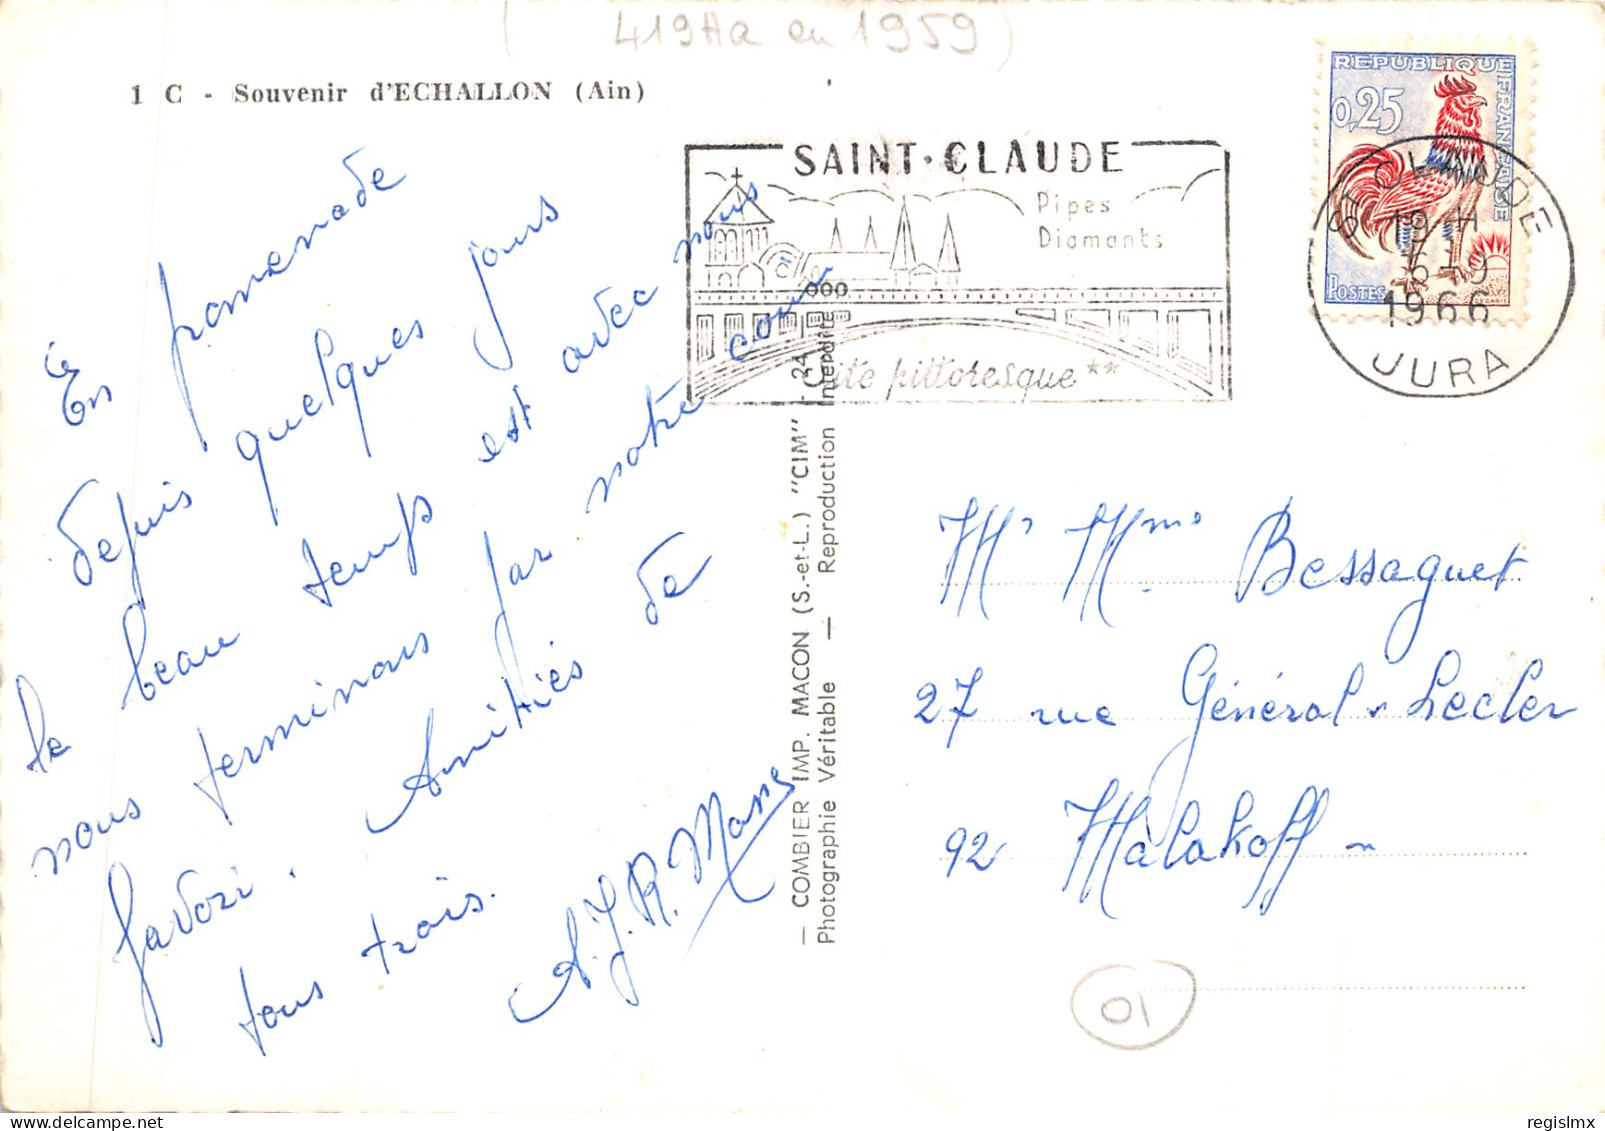 ( 419Ha en 1959 )
1 C - Souvenir d'ECHALLON (Ain)
En promenade
depuis quelques jours
le beau temps est avec nous
nous terminons par notre coin
favori. Amitiés de
tous trois.
A.J.R. Mans
SAINT-CLAUDE
Pipes
Diamants
Cité pittoresque **
REPUBLIQUE FRANÇAISE
0,25
POSTES
ST CLAUDE
19 H
1966
JURA
— COMBIER IMP. MACON (S.-et-L.) "CIM" - 24
Photographie Véritable — Reproduction Interdite
Mr Mme Bessaguet
27 rue Général Lecler
92 Malakoff
01
regislmx